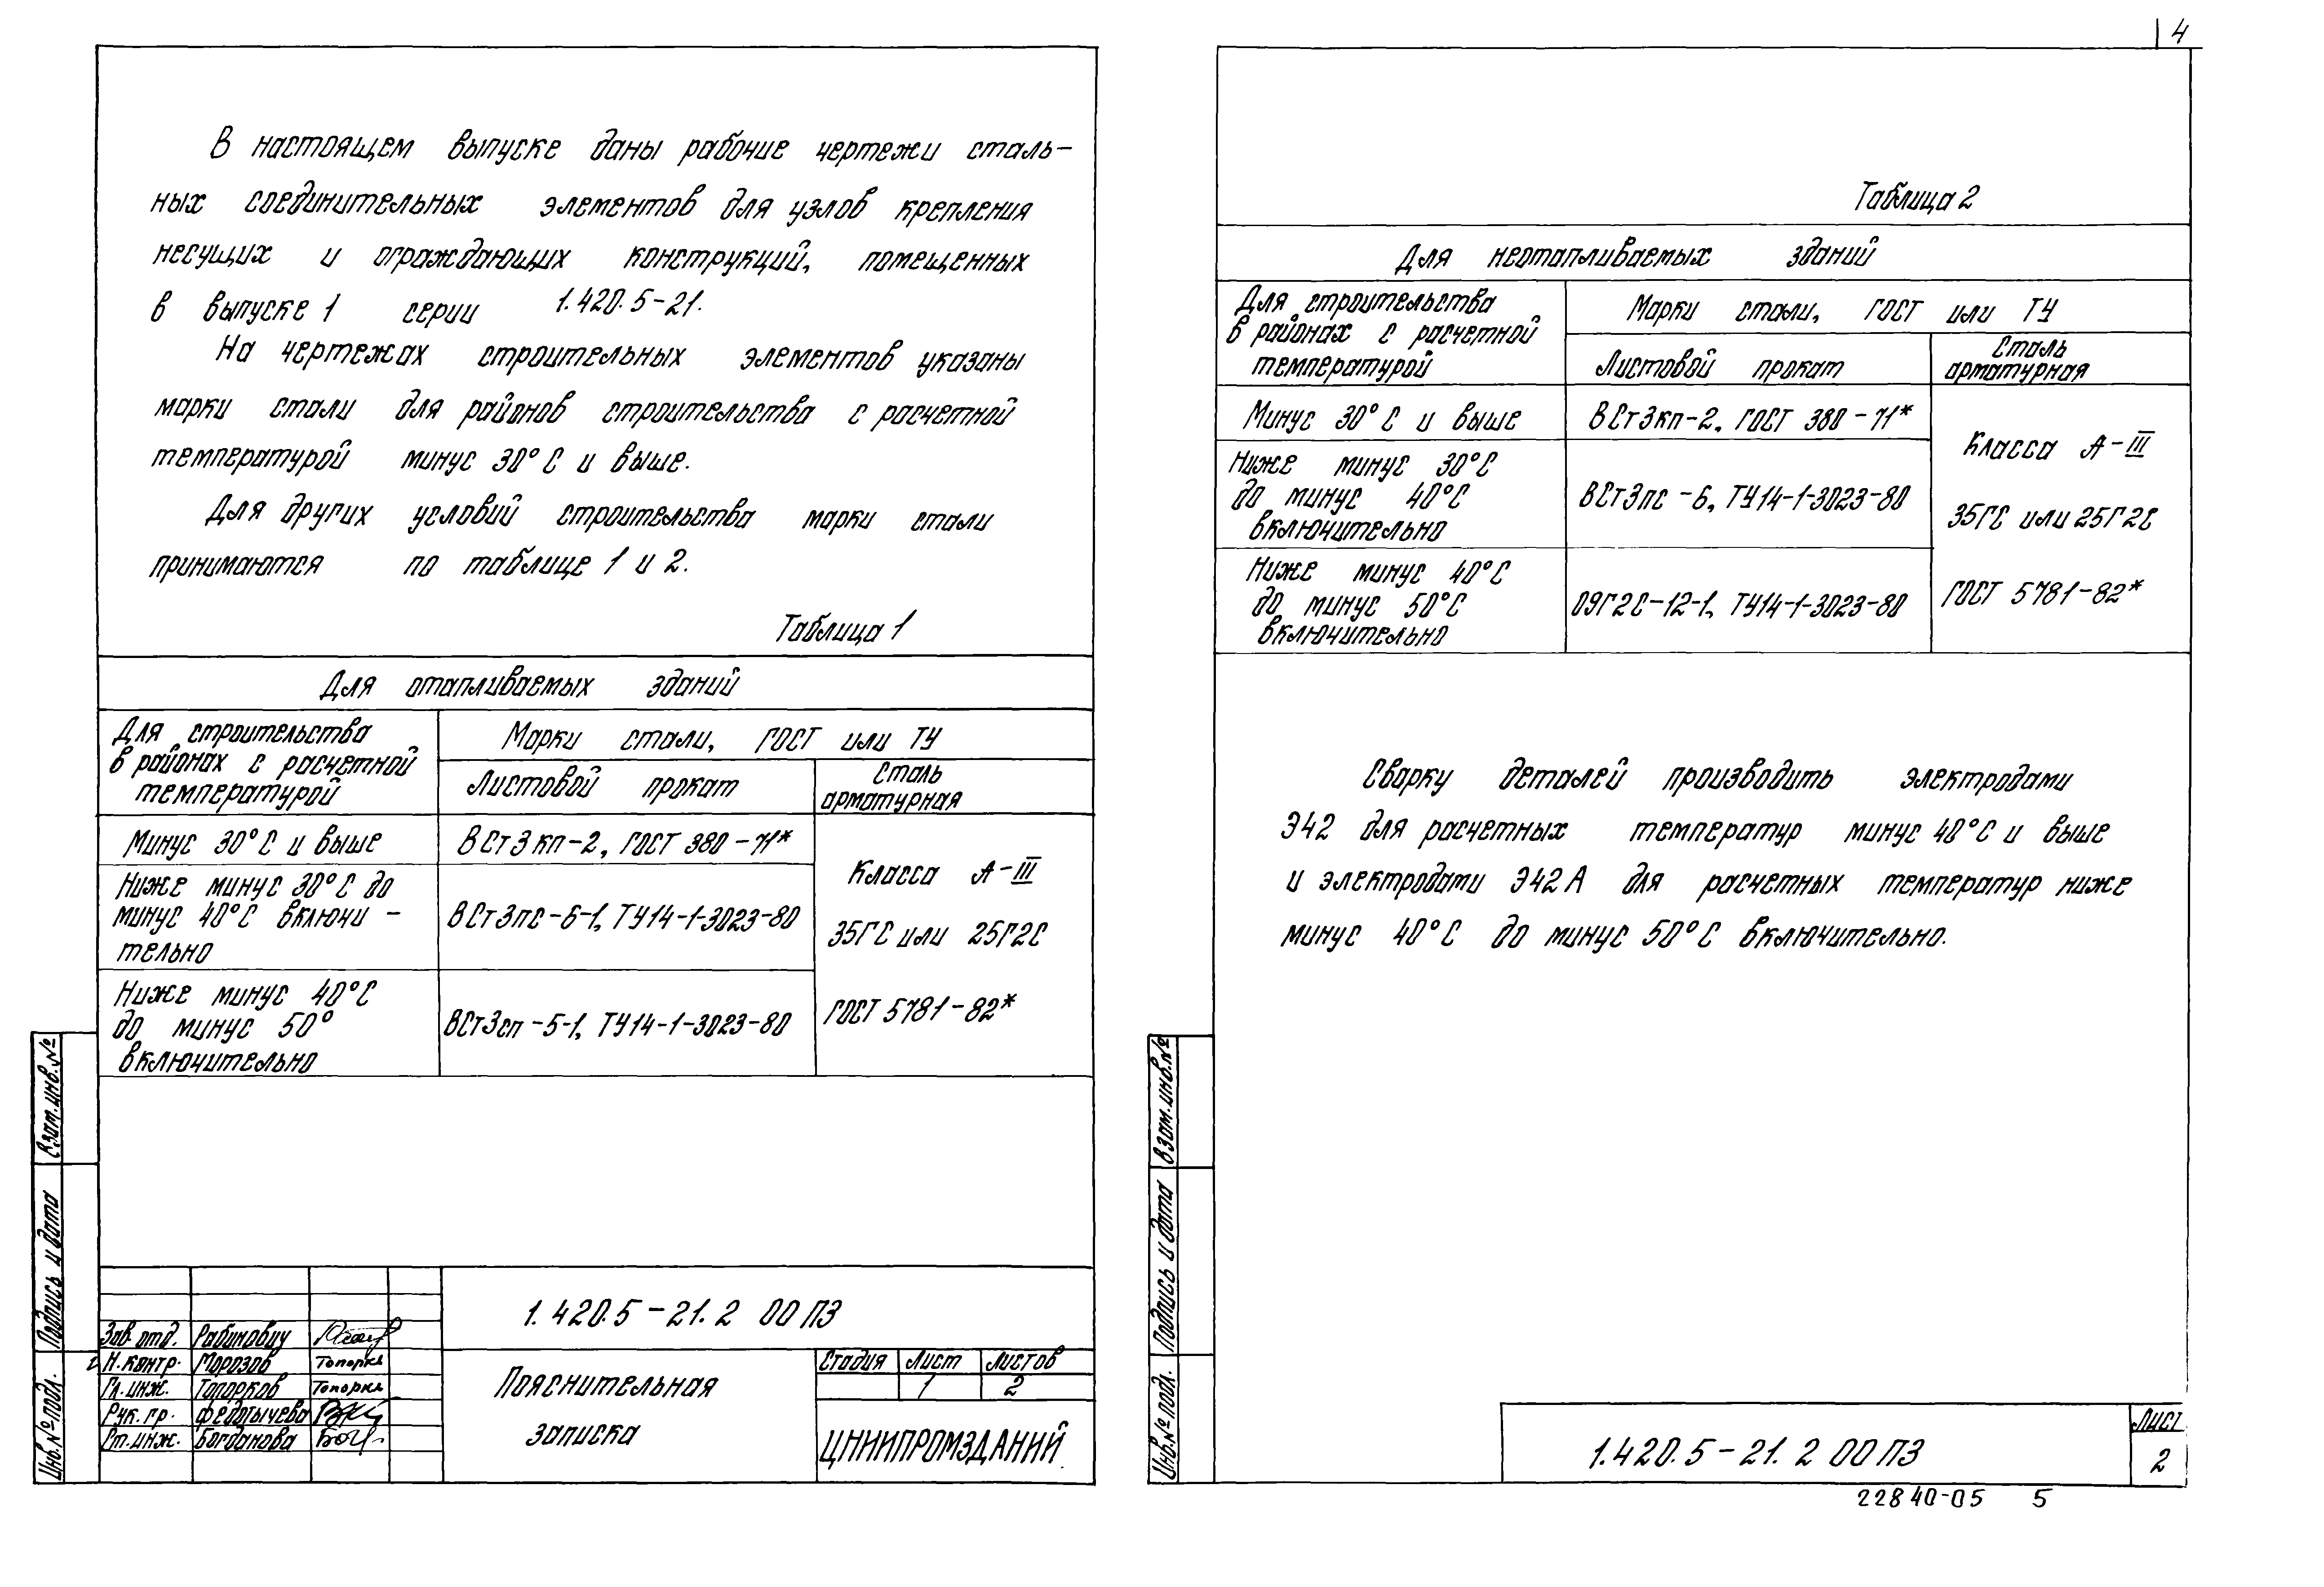 4
В настоящем выпуске даны рабочие чертежи сталь-
ных соединительных элементов для узлов крепления
несущих и ограждающих конструкций, помещенных
в выпуске 1 серии 1.420.5-21.
На чертежах строительных элементов указаны
марки стали для районов строительства с расчетной
температурой минус 30°С и выше.
Для других условий строительства марки стали
принимаются по таблице 1 и 2.
Таблица 1
Для отапливаемых зданий
Для строительства
в районах с расчетной
температурой
Марки стали, ГОСТ или ТУ
Листовой прокат
Сталь
арматурная
Минус 30°С и выше
ВСт3кп-2, ГОСТ 380-71*
Ниже минус 30°С до
минус 40°С включи-
тельно
ВСт3пс-6-1, ТУ14-1-3023-80
Ниже минус 40°С
до минус 50°
включительно
ВСт3сп-5-1, ТУ14-1-3023-80
Класса А-III
35ГС или 25Г2С
ГОСТ 5781-82*
Взам.инв.№
Подпись и дата
Инв.№подл.
Зав. отд. Рабинович
Н.контр. Морозов
Гл.инж. Топорков
Рук.гр. Федотычева
Ст.инж. Богданова
1.420.5-21.2 00 ПЗ
Пояснительная
записка
Стадия Лист Листов
1 2
ЦНИИПРОМЗДАНИЙ
Таблица 2
Для неотапливаемых зданий
Для строительства
в районах с расчетной
температурой
Марки стали, ГОСТ или ТУ
Листовой прокат
Сталь
арматурная
Минус 30°С и выше
ВСт3кп-2, ГОСТ 380-71*
Ниже минус 30°С
до минус 40°С
включительно
ВСт3пс-6, ТУ14-1-3023-80
Ниже минус 40°С
до минус 50°С
включительно
09Г2С-12-1, ТУ14-1-3023-80
Класса А-III
35ГС или 25Г2С
ГОСТ 5781-82*
Сварку деталей производить электродами
Э42 для расчетных температур минус 40°С и выше
и электродами Э42А для расчетных температур ниже
минус 40°С до минус 50°С включительно.
Взам.инв.№
Подпись и дата
Инв.№подл.
1.420.5-21.2 00 ПЗ
Лист
2
22840-05 5